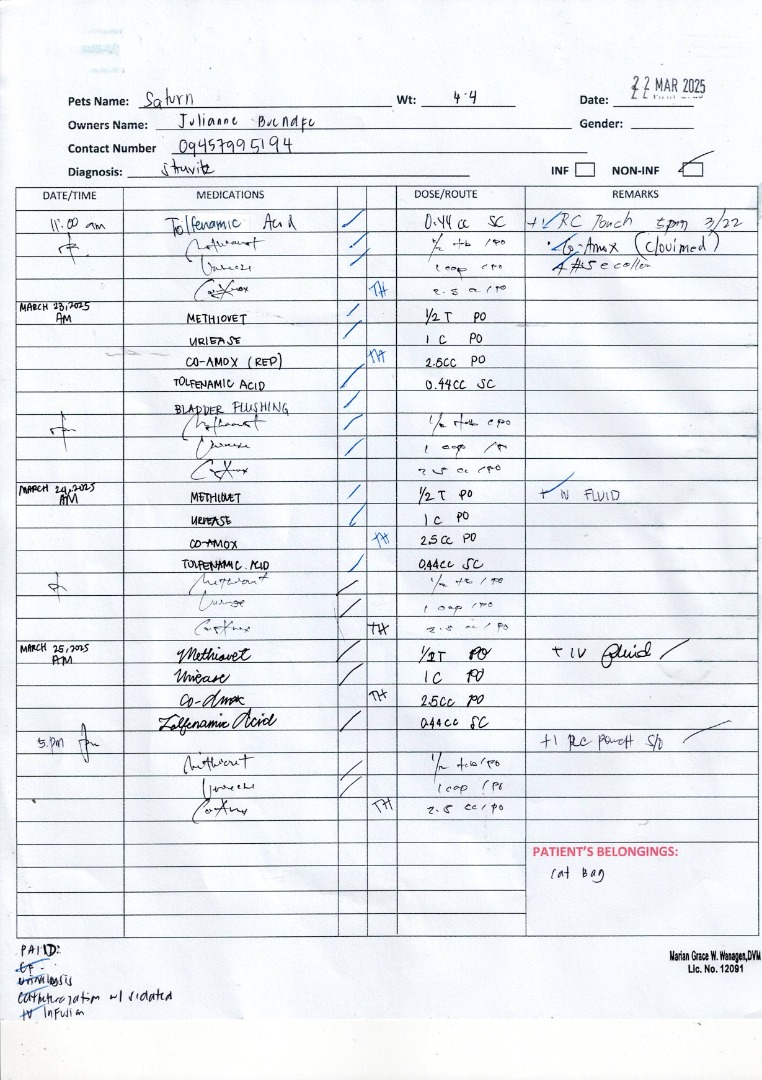 22 MAR 2025
Pets Name: Saturn Wt: 4.4 Date:
Owners Name: Julianne Gender:
Contact Number 09457995194
Diagnosis: INF NON-INF
DATE/TIME MEDICATIONS DOSE/ROUTE REMARKS
11:00 am Tolfenamic Acid 0.44 cc SC +1 RC Pouch 5pm 3/22
1/2 tab /PO Co-Amox
1 cap /PO
TH 2.5 cc/PO
MARCH 23,2025
AM METHIOVET 1/2 T PO
URIEASE 1 C PO
CO-AMOX (REP) TH 2.5CC PO
TOLFENAMIC ACID 0.44CC SC
BLADDER FLUSHING
1/2
1 cap /PO
2.5 cc/PO
MARCH 24,2025
AM METHIOVET 1/2 T PO + IV FLUID
URIEASE 1 C PO
CO-AMOX TH 2.5CC PO
TOLFENAMIC ACID 0.44CC SC
1/2 tab /PO
1 cap /PO
TH 2.5 cc/PO
MARCH 25,2025
AM Methiovet 1/2T PO + IV fluid
Uriease 1C PO
Co-Amox TH 2.5CC PO
Tolfenamic Acid 0.44CC SC
5 pm +1 RC pouch
1/2 tab/PO
1 cap /PO
TH 2.5 cc/PO
PATIENT'S BELONGINGS:
cat Bag
PAID:
urinalysis
catheterization w/ sedated
IV Infusion
Marian Grace W. Wanagen,DVM
Lic. No. 12091